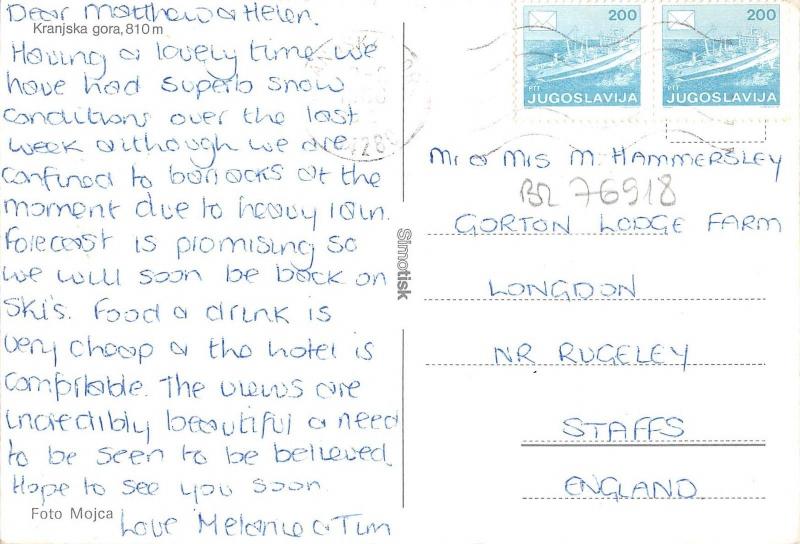 Dear Matthew & Helen.
Kranjska gora, 810 m
Having a lovely time we
have had superb snow
conditions over the last
week although we are
confined to barracks at the
moment due to heavy rain.
Forecast is promising so
we will soon be back on
skis. Food & drink is
very cheap & the hotel is
comfortable. The views are
incredibly beautiful & need
to be seen to be believed
Hope to see you soon.
Love Melanie & Tim
Foto Mojca
Simotisk
200
PTT
JUGOSLAVIJA
200
PTT
JUGOSLAVIJA
Mr & Mrs M. HAMMERSLEY
BR 76918
GORTON LODGE FARM
LONGDON
NR RUGELEY
STAFFS
ENGLAND